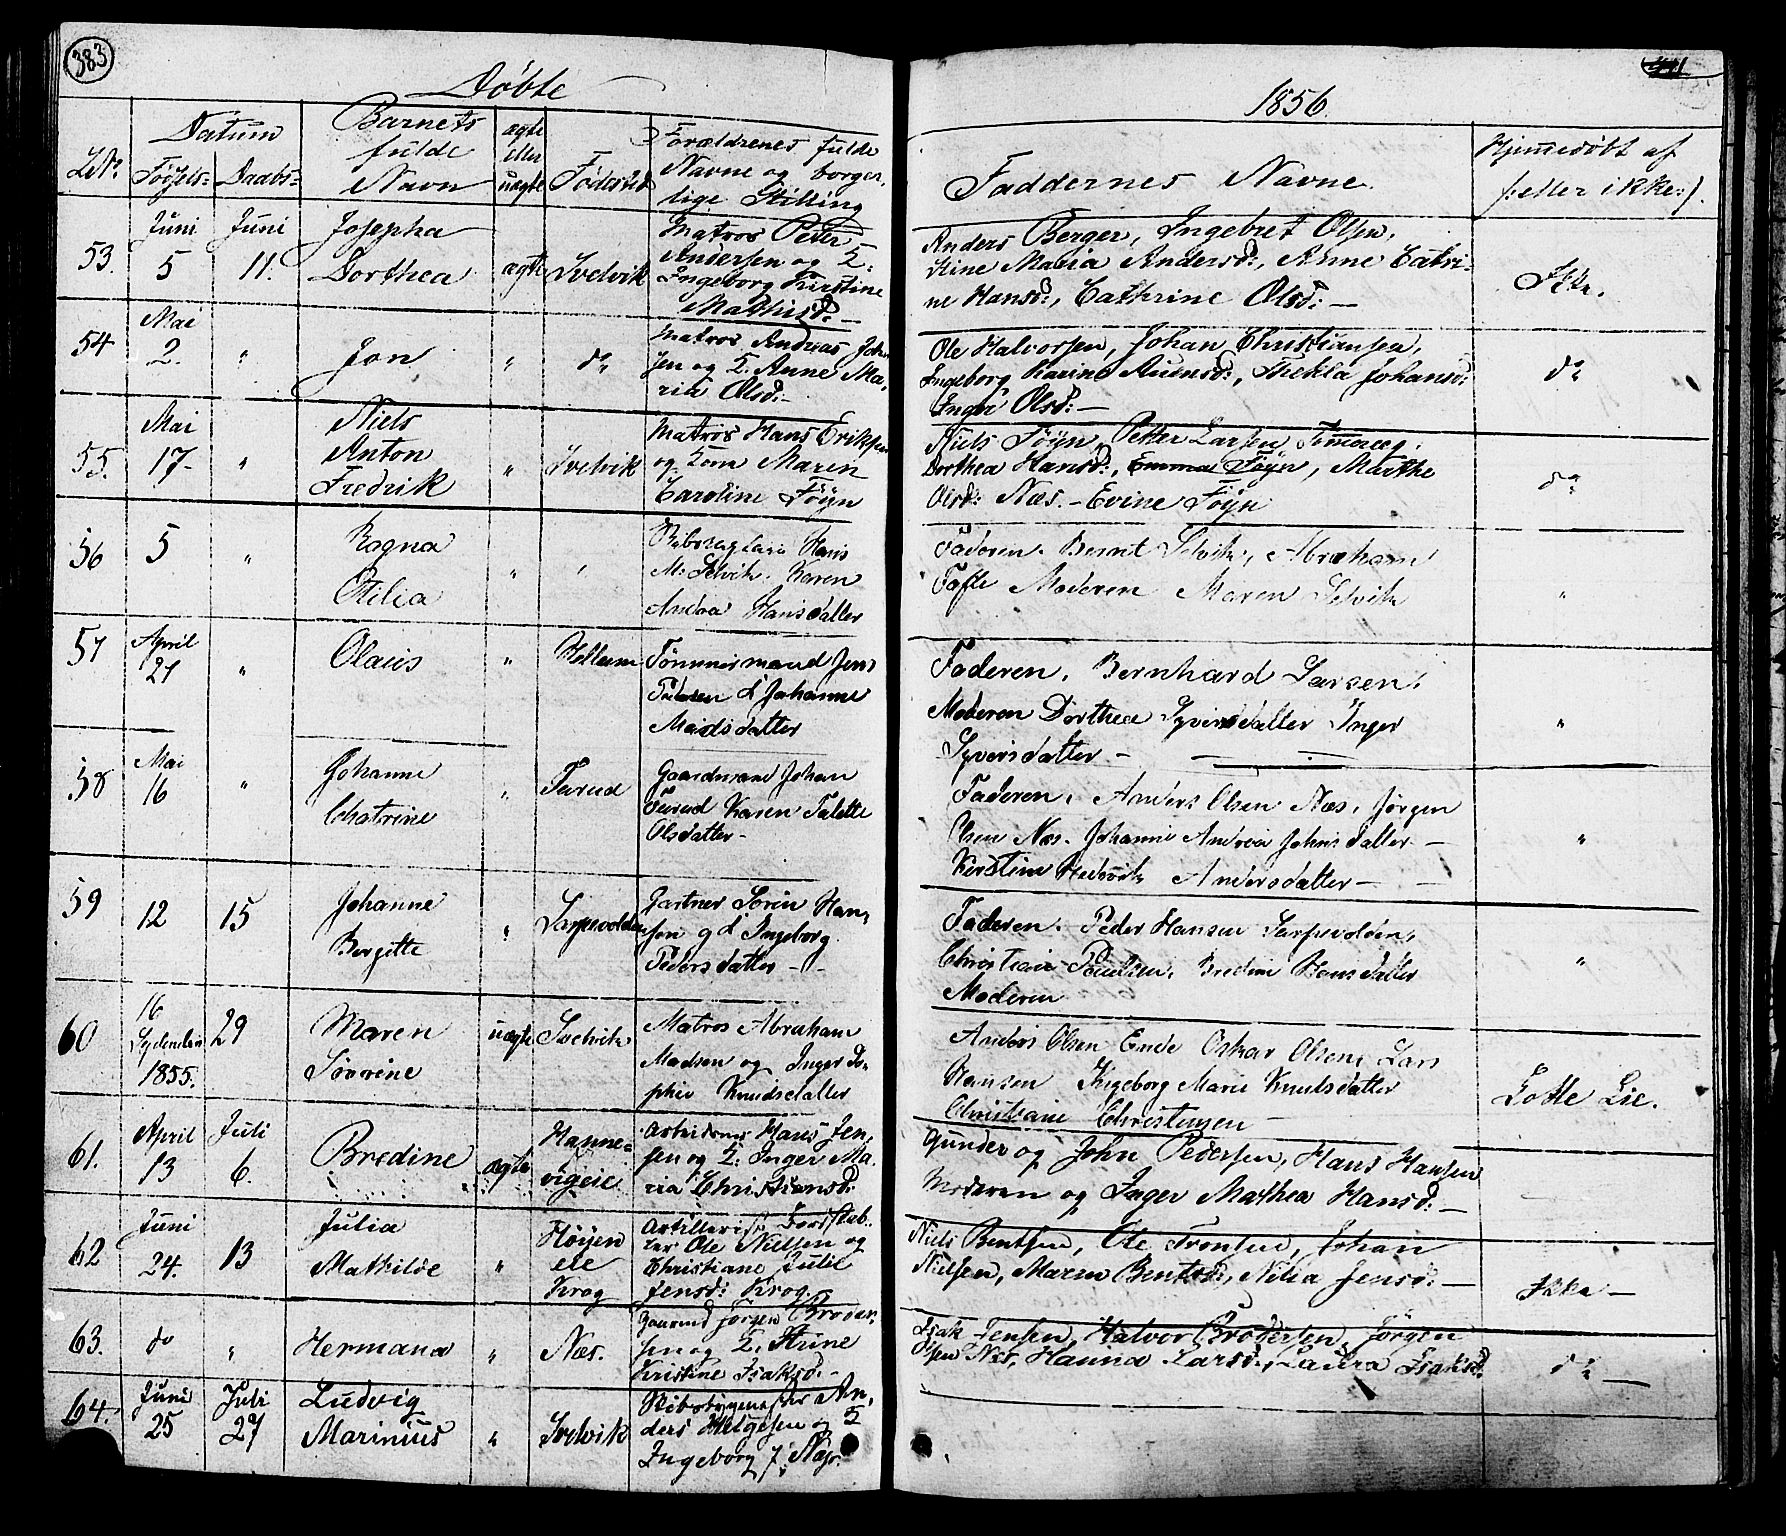 383
Döbte
1856.
LNo.
Datum
Fødsels- Daabs-
Barnets fulde Navn
ægte eller uægte
Fødested
Forældrenes fulde Navne og borgerlige Stilling
Faddernes Navne.
Hjemmedöbt af (:eller ikke:).
53. Juni 5 Juni 11. Josepha Dorthea ægte Svelvik
Matros Peter
Andersen og
Ingeborg Kirstine
Mathisd:
Anders Berger, Ingebret Olsen,
Stine Maria Andersd:, Anne Catri-
ne Hansd:, Cathrine Olsd: —
Ikke.
54 Mai 2. " Jon " do
Matros Andreas Johan
sen og Anne Ma-
ria Olsd:-
Ole Halvorsen, Johan Christiansen,
Ingeborg Karine Thekla Johansd:
Inger Olsd: —
do
55. Mai 17- " Niels Anton Fredrik " Svelvik
Matros Hans Eriksen
og Kone Maren
Caroline Föyn
Niels Föyn, Petter Larsen
Dorthea Hansd:, Emma Föyn, Marthe
Olsd: Næs. - Evine Föyn
do
56 5 " Ragna Otilia " "
Hans
M. Selvik. Karen
Andrea Hansdatter
Faderen. Bernt Selvik, Abraham
Tofte Moderen Maren Selvik
"
57 April 21 " Olaus "
Tömmermand Jens
Johanne
Madsdatter
Faderen. Bernhard Larsen.
Moderen Dorthea Syversdatter Inger
Syversdatter -
"
58 Mai 16 " Johanne Chatrine " Tarud
Gaardmand Johan
Tarud Karen Talette
Olsdatter-
Faderen. Anders Olsen Næs. Jörgen
Olsen Næs. Johanne Andrea Johnsdatter —
Kirstine Hedevik Andersdatter —
"
59 12 15 Johanne Bergitte "
Gartner Sören Han-
sen Ingeborg
Pedersdatter -
Faderen. Peder Hansen
Christian Poulsen. Bredine Hansdatter
Moderen
"
60 16 1855. 29 Maren Sövrine uægte Svelvik
Matros Abraham
Madsen og Inger So-
phie Knudsdatter
Anders Olsen Ende Oskar Olsen, Lars
Hansen Ingeborg Marie Knutsdatter
Christiane Christensen
Lotte Lie.
61. April 13 Juli 6. Bredine ægte Hanne-
vigeie
Hans Jen-
sen og Inger Ma-
ria Christiansd:
Gunder og John Pedersen, Hans Hansen
Moderen og Inger Mathea Hansd: —
62 Juni 24. 13 Julia Mathilde " Höyen
eie
Krog
Artillerist
Ole Nielsen og
Christiane Julie
Jensd: Krog.
Niels Bentsen, Ole Johan
Nielsen, Maren Bentsd:, Nilia Jensd: —
Ikke —
63. do " Hermana " Næs.
Gaarmd Jörgen Broder-
sen og Stine
Kristine Isaksd. -
Isak Jensen, Halvor Brodersen, Jörgen
Næs, Hanna Larsd:, Laura Isaksd:
do —
64. Juni 25 Juli 27 Ludvig Marinius " Svelvik
An-
ders Helgesen og
Ingeborg